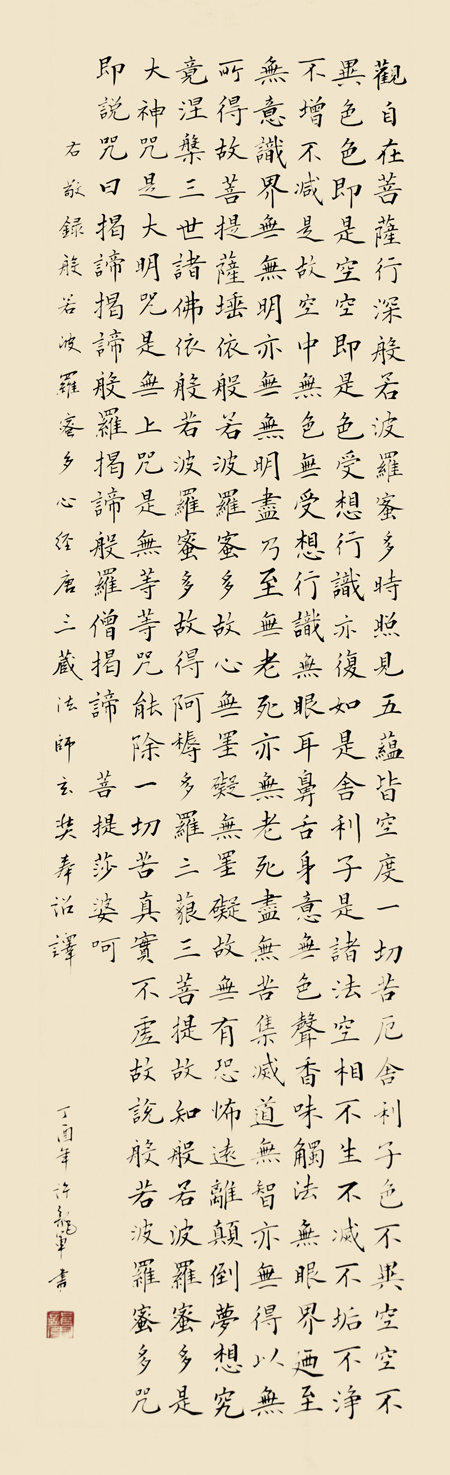 觀自在菩薩行深般若波羅蜜多時照見五蘊皆空度一切苦厄舍利子色不異空空不
異色色即是空空即是色受想行識亦復如是舍利子是諸法空相不生不滅不垢不淨
不增不減是故空中無色無受想行識無眼耳鼻舌身意無色聲香味觸法無眼界廼至
無意識界無無明亦無無明盡乃至無老死亦無老死盡無苦集滅道無智亦無得以無
所得故菩提薩埵依般若波羅蜜多故心無罣礙無罣礙故無有恐怖遠離顛倒夢想究
竟涅槃三世諸佛依般若波羅蜜多故得阿耨多羅三藐三菩提故知般若波羅蜜多是
大神咒是大明咒是無上咒是無等等咒能除一切苦真實不虛故說般若波羅蜜多咒
即說咒曰揭諦揭諦般羅揭諦般羅僧揭諦 菩提莎婆呵
右敬錄般若波羅蜜多心經唐三藏法師玄奘奉詔譯
丁酉年許龍軍書